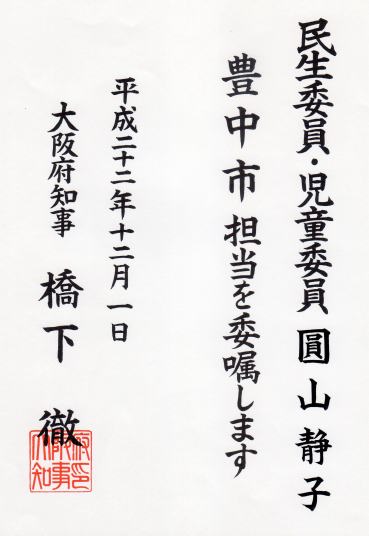 民生委員・児童委員 圓山静子
豊中市担当を委嘱します
平成二十二年十二月一日
大阪府知事 橋下徹
大阪府知事印